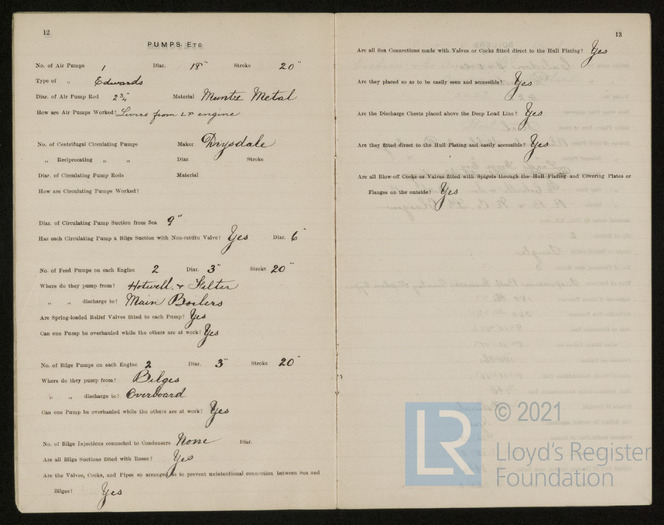 12
PUMPS, ETC
No. of Air Pumps 1 Diar. 18" Stroke 20"
Type of " Edwards
Diar. of Air Pump Rod 2¾" Material Muntz Metal
How are Air Pumps Worked? Levers from LP engine
No. of Centrifugal Circulating Pumps Maker Drysdale
" Reciprocating " " Diar Stroke
Diar. of Circulating Pump Rods Material
How are Circulating Pumps Worked?
Diar. of Circulating Pump Suction from Sea 9"
Has each Circulating Pump a Bilge Suction with Non-return Valve? Yes Diar. 6"
No. of Feed Pumps on each Engine 2 Diar. 3" Stroke 20"
Where do they pump from? Hotwell & Filter
" " discharge to? Main Boilers
Are Spring-loaded Relief Valves fitted to each Pump? Yes
Can one Pump be overhauled while the others are at work? Yes
No. of Bilge Pumps on each Engine 2 Diar. 3" Stroke 20"
Where do they pump from? Bilges
" " discharge to? Overboard
Can one Pump be overhauled while the others are at work? Yes
No. of Bilge Injections connected to Condensers None Diar.
Are all Bilge Suctions fitted with Roses? Yes
Are the Valves, Cocks, and Pipes so arranged as to prevent unintentional connection between Sea and
Bilges? Yes
13
Are all Sea Connections made with Valves or Cocks fitted direct to the Hull Plating? Yes
Are they placed so as to be easily seen and accessible? Yes
Are the Discharge Chests placed above the Deep Load Line? Yes
Are they fitted direct to the Hull Plating and easily accessible? Yes
Are all Blow-off Cocks or Valves fitted with Spigots through the Hull Plating and Covering Plates or
Flanges on the outside? Yes
LR
© 2021
Lloyd's Register
Foundation